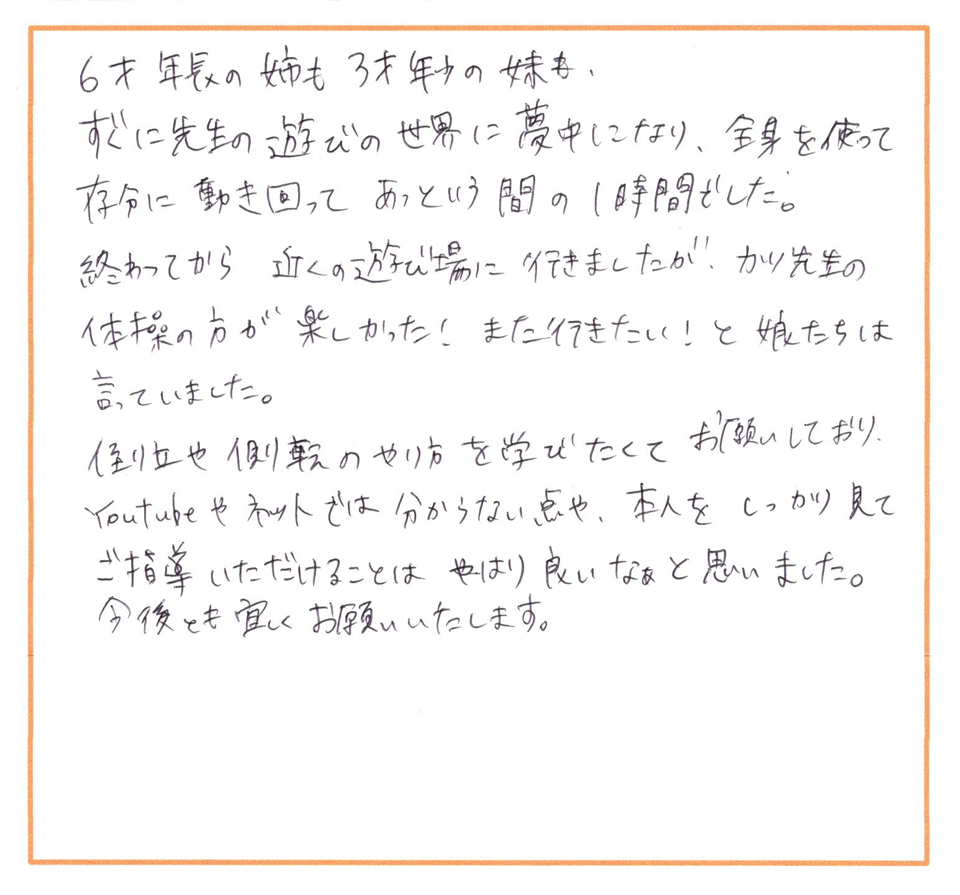 6才年長の姉も3才年少の妹も、
すぐに先生の遊びの世界に夢中になり、全身を使って
存分に動き回ってあっという間の1時間でした。
終わってから 近くの遊び場に行きましたが、カツ先生の
体操の方が楽しかった!また行きたい!と娘たちは
言っていました。
倒立や側転のやり方を学びたくてお願いしており、
Youtubeやネットでは分からない点や、本人をしっかり見て
ご指導いただけることはやはり良いなぁと思いました。
今後とも宜しくお願いいたします。